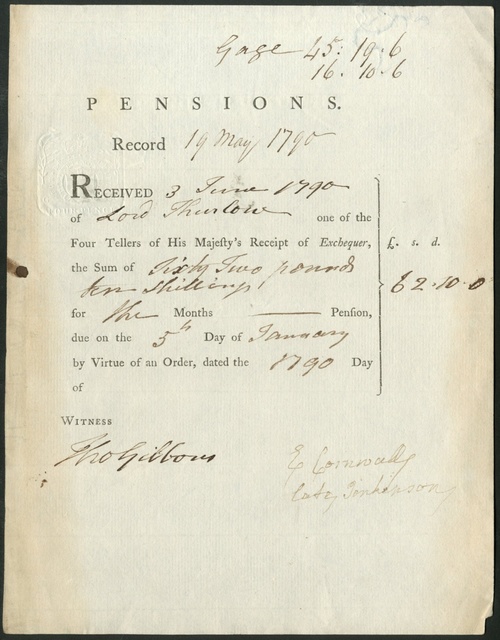 Gage 45. 19. 6
16. 10. 6
PENSIONS.
Record 19 May 1790
RECEIVED 3 June 1790
of Lord Thurlow one of the
Four Tellers of His Majesty's Receipt of Exchequer, £. s. d.
the Sum of Sixty Two pounds
ten Shillings 62. 10. 0
for the Months Pension,
due on the 5th Day of January
by Virtue of an Order, dated the 1790 Day
of
WITNESS
Tho Gibbons
E Cornwall
late Jenkinson